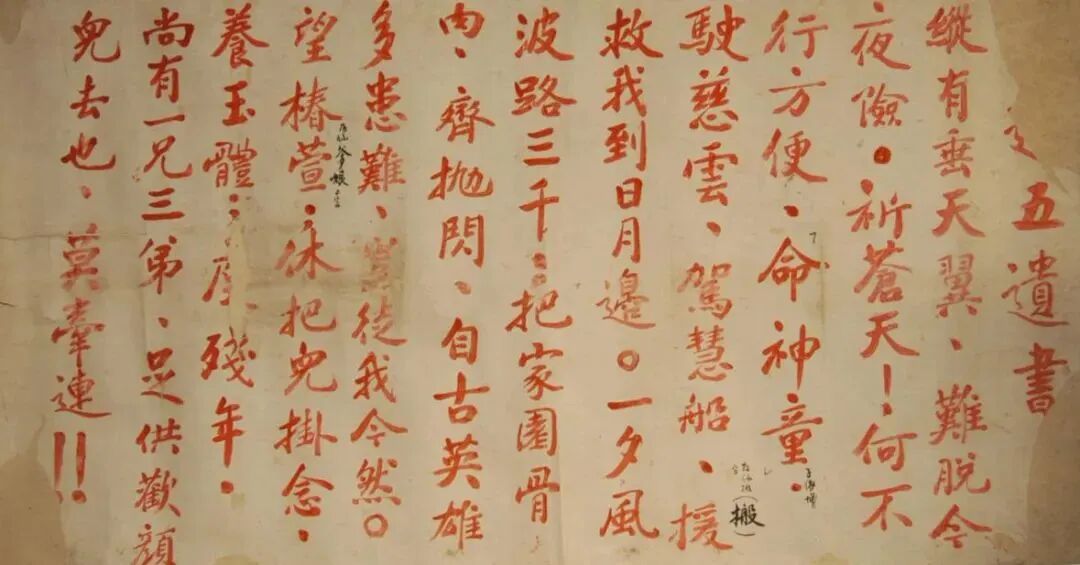 五遺書
縱有垂天翼、難脫今
夜險。祈蒼天！何不
行方便、命神童．
駛慈雲、駕慧船、援
(搬)
救我到日月邊。一夕風
波路三千；把家園骨
肉、齊拋閃、自古英雄
多患難、豈徒我今然。
望椿萱．休把兒掛念．
養玉體：度殘年．
尚有一兄三弟、足供歡顏
兒去也、莫牽連!!